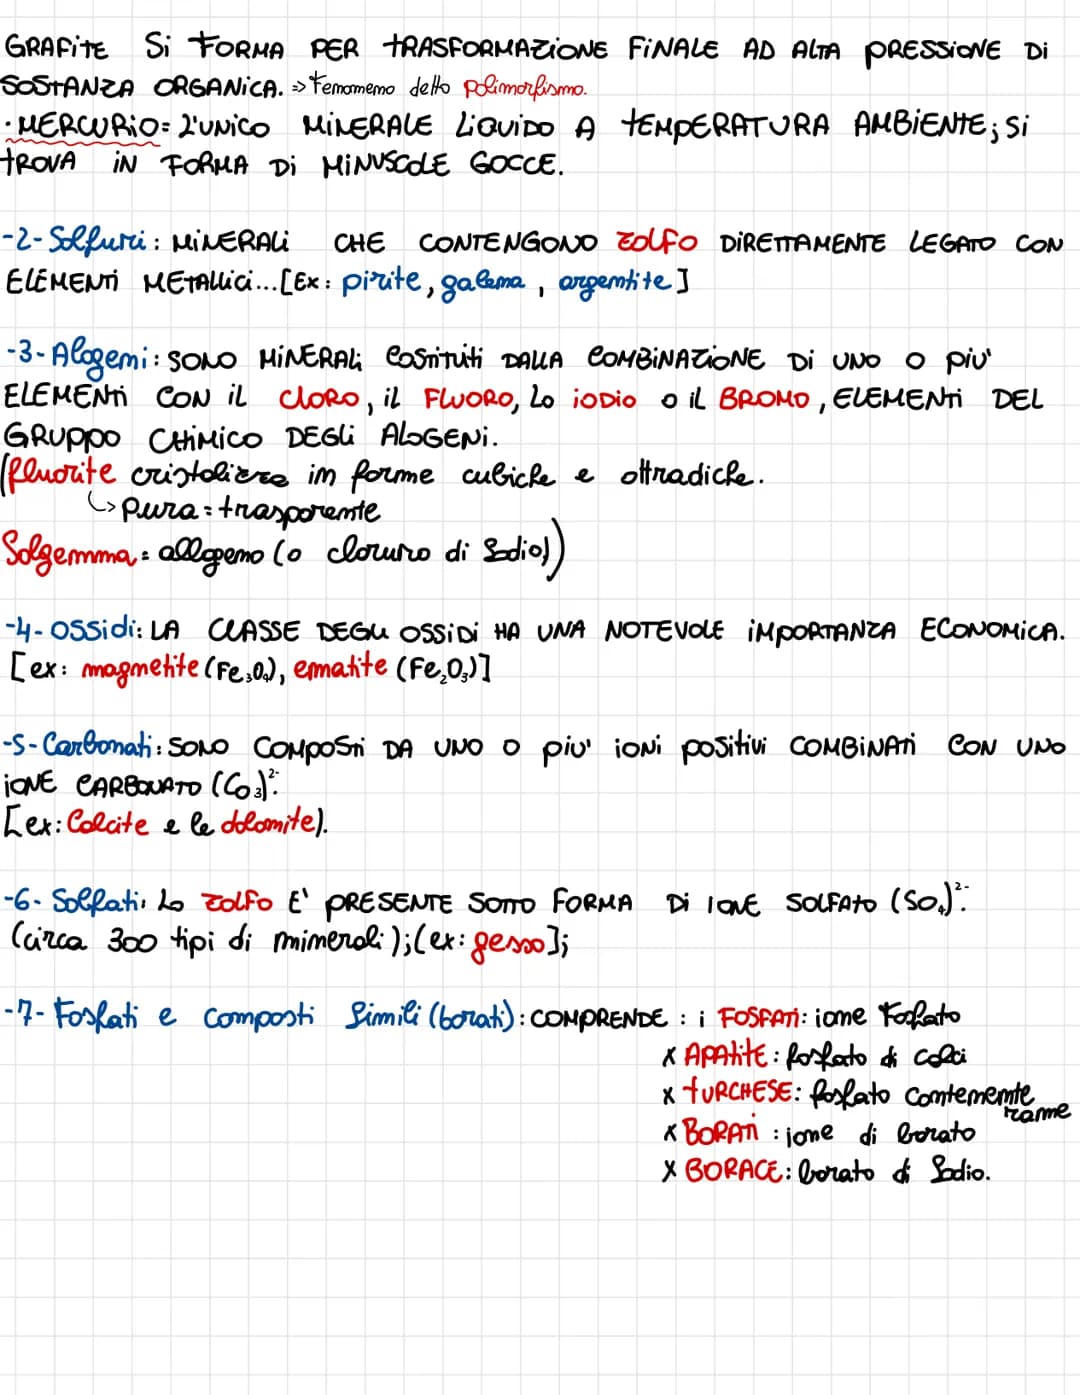 GRAFITE Si FORMA PER TRASFORMAZIONE FINALE AD ALTA PRESSIONE Di
SOSTANZA ORGANICA. => Fenomeno detto polimorfismo.
· MERCURIO = L'UNICO MINERALE LIQUIDO A TEMPERATURA AMBIENTE; Si
TROVA IN FORMA Di MINUSCOLE GOCCE.
-2- Solfuri: MINERALI CHE CONTENGONO ZOLFO DIRETTAMENTE LEGATO CON
ELEMENTI METALLICI... [Ex: pirite, galena, argentite]
-3- Alogeni: SONO MINERALI COSTITUITI DALLA COMBINAZIONE Di UNO O PIU'
ELEMENTI CON IL CLORO, IL FLUORO, LO IODIO O IL BROMO, ELEMENTI DEL
GRUPPO CHIMICO DEGLI ALOGENI.
(fluorite cristalizza in forme cubiche e ottradiche.
↳ pura = trasparente
Salgemma = allogeno (o cloruro di Sodio))
-4- OSSidi: LA CLASSE DEGLI OSSIDI HA UNA NOTEVOLE IMPORTANZA ECONOMICA.
[ex: magnetite (Fe₃O₄), ematite (Fe₂O₃)]
-5- Carbonati: SONO COMPOSTI DA UNO O PIU' IONI POSITIVI COMBINATI CON UNO
IONE CARBONATO (CO₃)²⁻.
[ex: Calcite e le dolomite).
-6- Solfati: LO ZOLFO E' PRESENTE SOTTO FORMA Di IONE SOLFATO (SO₄)²⁻.
(circa 300 tipi di minerali); (ex: gesso];
-7- Fosfati e composti Simili (borati): COMPRENDE: i FOSFATI: ione Fosfato
x APATITE: fosfato di calci
x TURCHESE: fosfato contenente
rame
x BORATI: ione di borato
x BORACE: borato di Sodio.